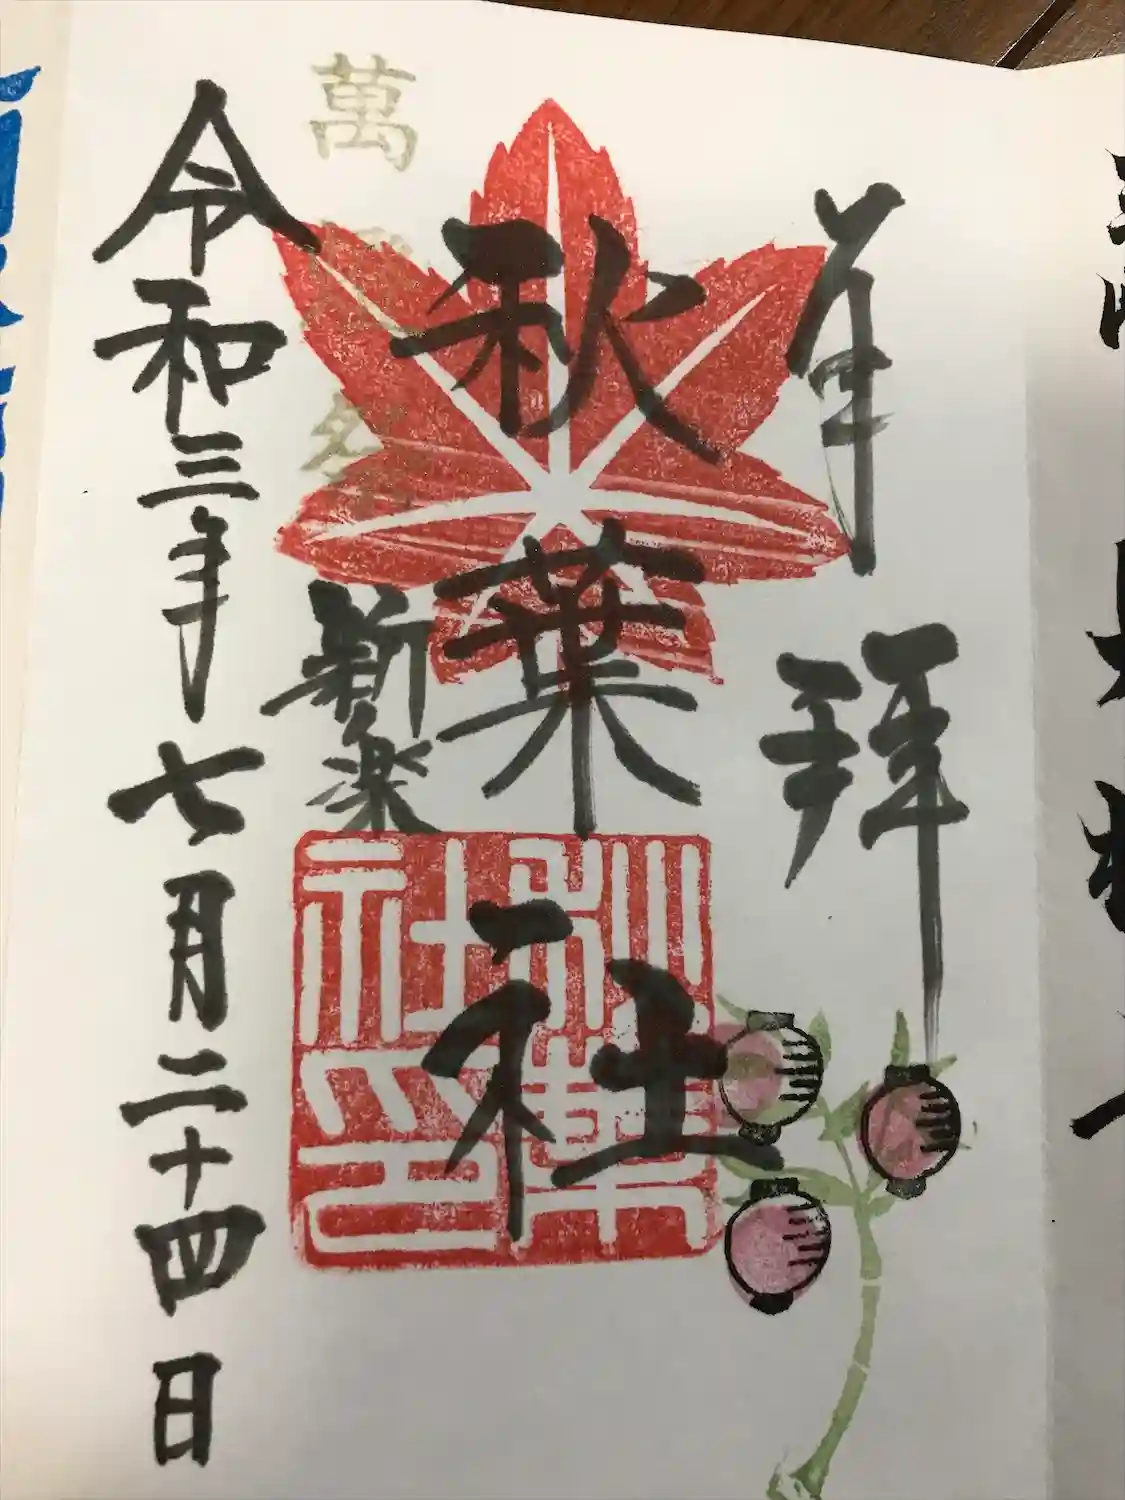 奉拝
秋葉社
秋葉社印
新楽
萬
令和三年七月二十四日